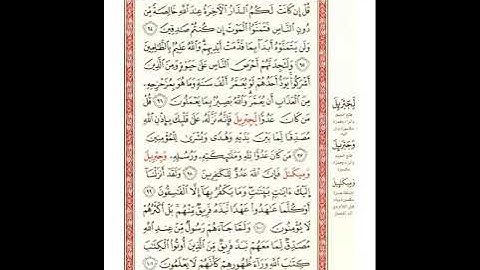 قُلْ إِن كَانَتْ لَكُمُ ٱلدَّارُ ٱلْـَٔاخِرَةُ عِندَ ٱللَّهِ خَالِصَةً مِّن
دُونِ ٱلنَّاسِ فَتَمَنَّوُا۟ ٱلْمَوْتَ إِن كُنتُمْ صَـٰدِقِينَ ٩٤
وَلَن يَتَمَنَّوْهُ أَبَدًۢا بِمَا قَدَّمَتْ أَيْدِيهِمْ وَٱللَّهُ عَلِيمٌۢ بِٱلظَّـٰلِمِينَ
٩٥ وَلَتَجِدَنَّهُمْ أَحْرَصَ ٱلنَّاسِ عَلَىٰ حَيَوٰةٍ وَمِنَ ٱلَّذِينَ
أَشْرَكُوا۟ يَوَدُّ أَحَدُهُمْ لَوْ يُعَمَّرُ أَلْفَ سَنَةٍ وَمَا هُوَ بِمُزَحْزِحِهِۦ
مِنَ ٱلْعَذَابِ أَن يُعَمَّرَ وَٱللَّهُ بَصِيرٌۢ بِمَا يَعْمَلُونَ ٩٦ قُلْ
مَن كَانَ عَدُوًّا لِّجَبْرِيلَ فَإِنَّهُۥ نَزَّلَهُۥ عَلَىٰ قَلْبِكَ بِإِذْنِ ٱللَّهِ
مُصَدِّقًا لِّمَا بَيْنَ يَدَيْهِ وَهُدًى وَبُشْرَىٰ لِلْمُؤْمِنِينَ
٩٧ مَن كَانَ عَدُوًّا لِّلَّهِ وَمَلَـٰٓئِكَتِهِۦ وَرُسُلِهِۦ وَجَبْرِيلَ
وَمِيكَـٰٓئِلَ فَإِنَّ ٱللَّهَ عَدُوٌّ لِّلْكَـٰفِرِينَ ٩٨ وَلَقَدْ أَنزَلْنَآ
إِلَيْكَ ءَايَـٰتٍۭ بَيِّنَـٰتٍ وَمَا يَكْفُرُ بِهَآ إِلَّا ٱلْفَـٰسِقُونَ ٩٩
أَوَكُلَّمَا عَـٰهَدُوا۟ عَهْدًا نَّبَذَهُۥ فَرِيقٌ مِّنْهُم بَلْ أَكْثَرُهُمْ
لَا يُؤْمِنُونَ ١٠٠ وَلَمَّا جَآءَهُمْ رَسُولٌ مِّنْ عِندِ ٱللَّهِ
مُصَدِّقٌ لِّمَا مَعَهُمْ نَبَذَ فَرِيقٌ مِّنَ ٱلَّذِينَ أُوتُوا۟ ٱلْكِتَـٰبَ
كِتَـٰبَ ٱللَّهِ وَرَآءَ ظُهُورِهِمْ كَأَنَّهُمْ لَا يَعْلَمُونَ ١٠١
لِّجَبْرِيلَ
وَجَبْرِيلَ
وَمِيكَـٰٓئِلَ